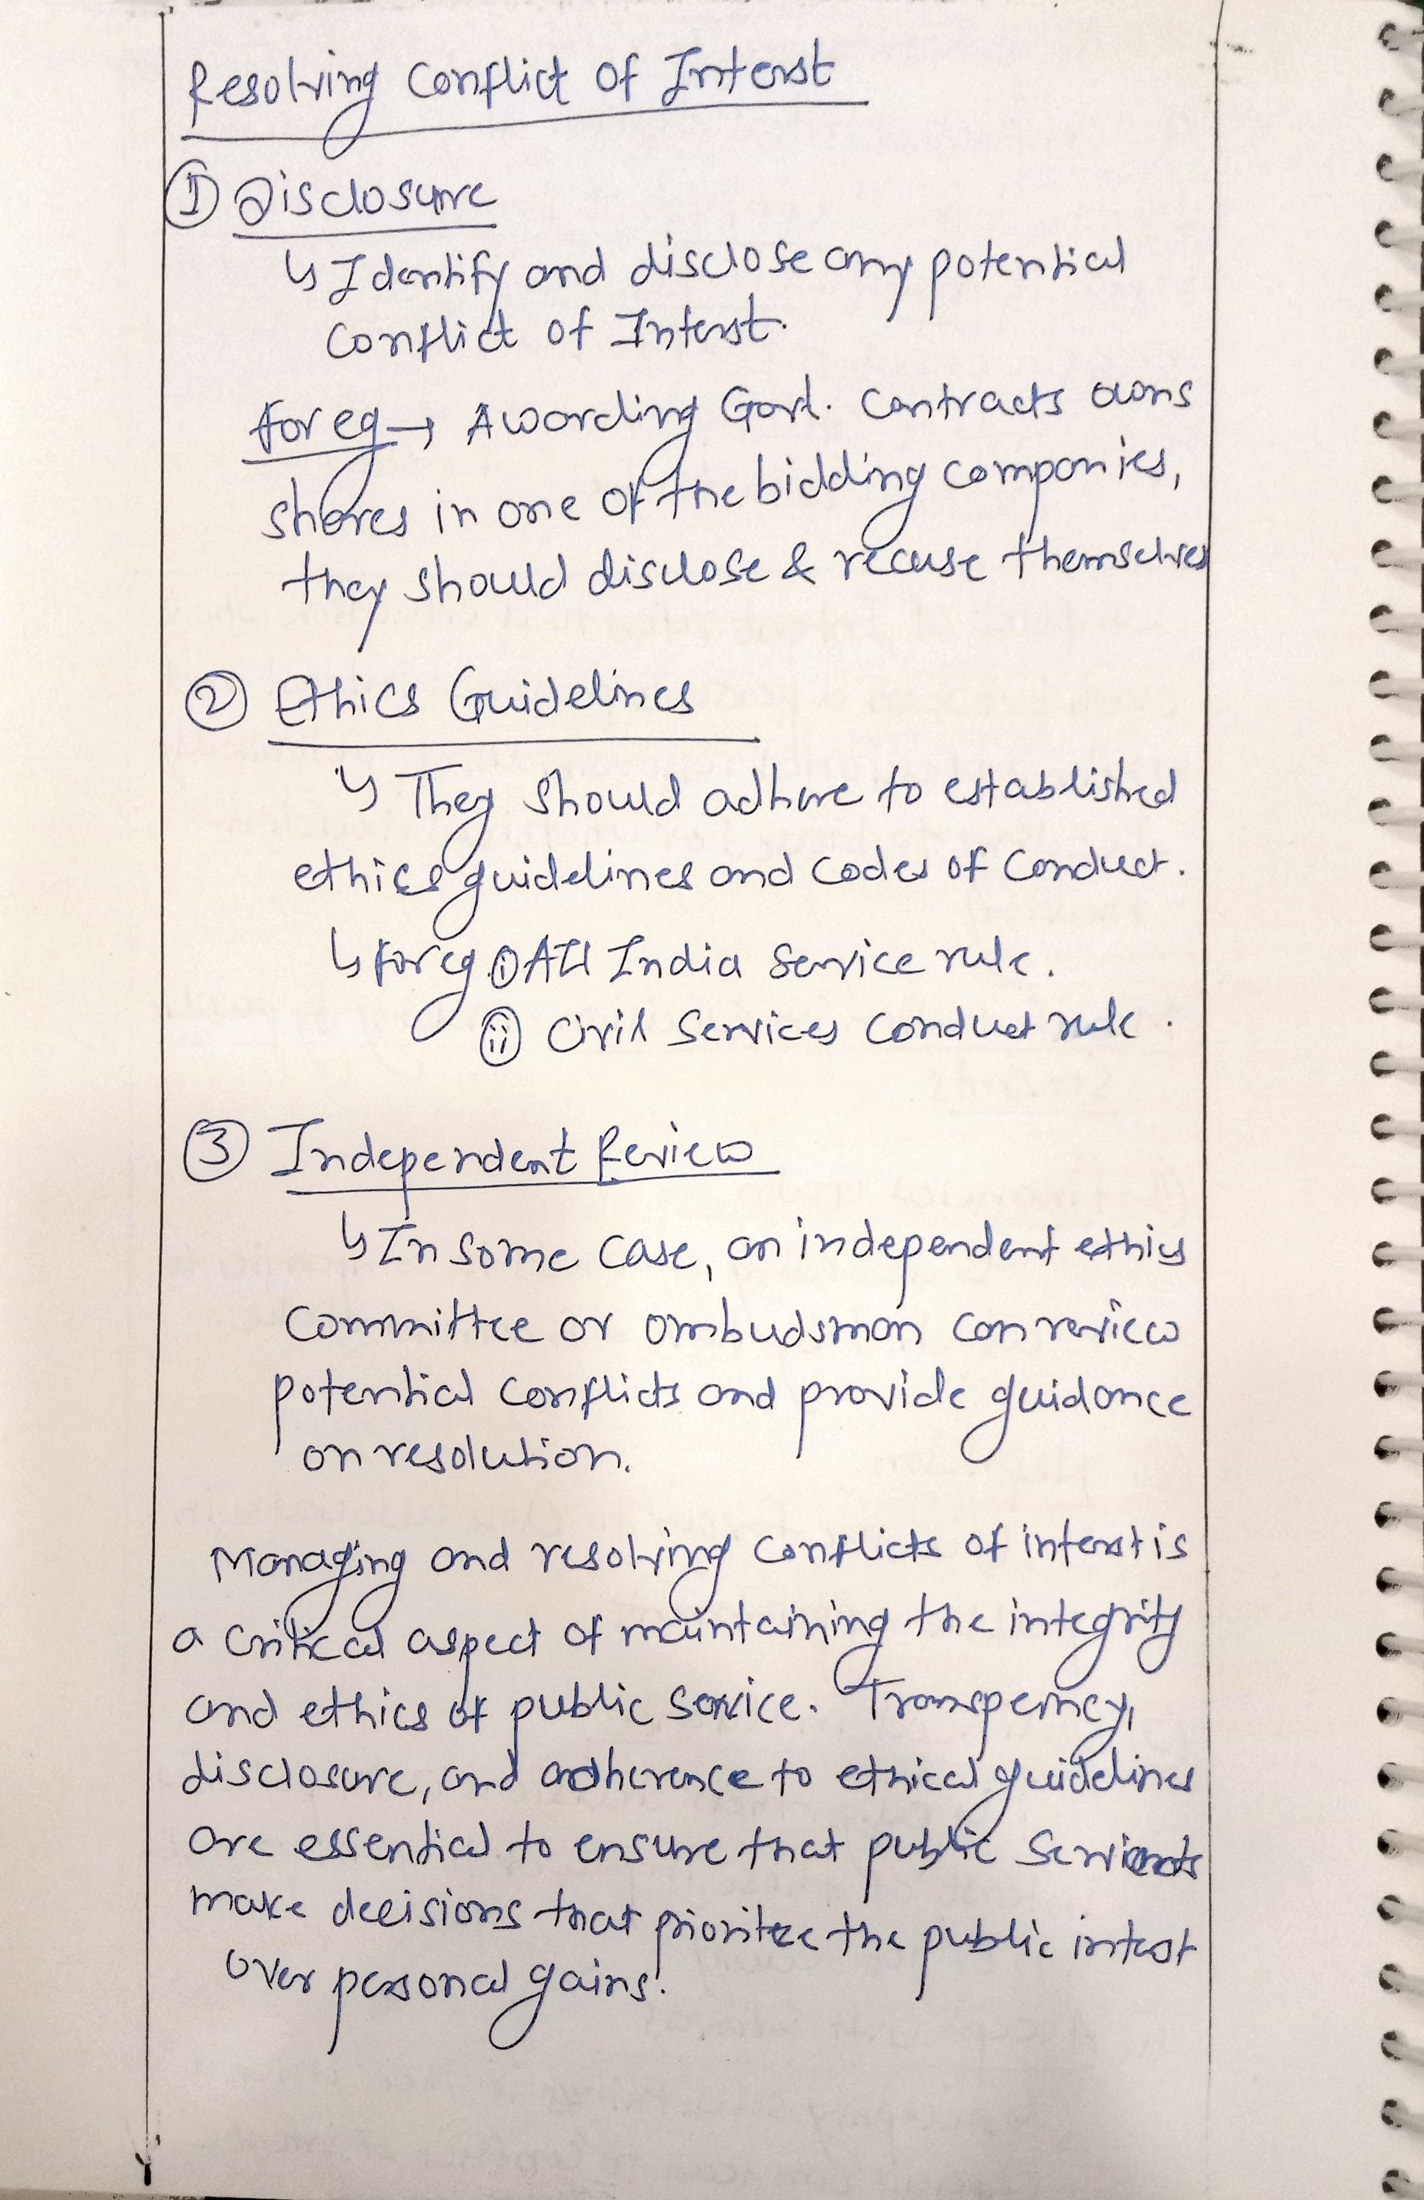 Resolving Conflict of Interst
① Disclosure
↳ Identify and disclose any potential
Conflict of Interst.
for eg → Awarding Govt. Contracts owns
shares in one of the bidding companies,
they should disclose & recuse themselves
② Ethics Guidelines
↳ They should adhere to established
ethics guidelines and codes of conduct.
↳ for eg. ⓘ All India Service rule.
ⓘⓘ Civil Services Conduct rule.
③ Independent Review
↳ In some case, an independent ethics
Committee or ombudsman can review
potential conflicts and provide guidance
on resolution.
Managing and resolving conflicts of interst is
a critical aspect of maintaining the integrity
and ethics of public service. Transperncy,
disclosure, and adherence to ethical guidelines
are essential to ensure that public servants
make decisions that prioritze the public interst
over personal gains.